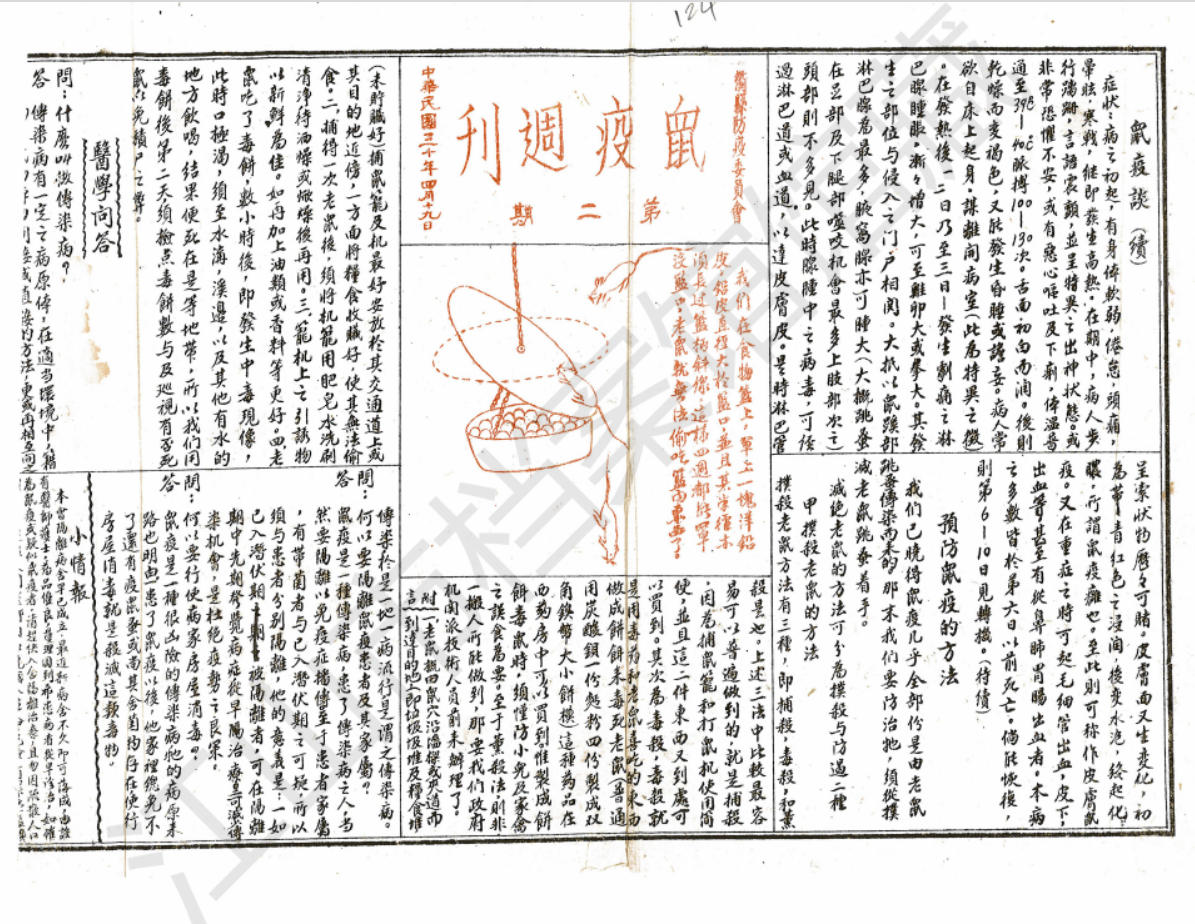 124
鼠疫談(續)
症狀:病之初起,有身体軟弱,倦怠,頭痛,
暈眩,寒戰,继即發生高熱。在期中,病人步
行蹒跚,言語震顫,並呈特異之出神狀態。或
非常恐懼不安,或有惡心嘔吐及下剩,体溫普
通至39.8-40℃脈搏100-130次。舌面初白而润,後則
乾燥而变褐色,又能發生昏睡或譫妄。病人常
欲自床上起身,謀離開病室(此為特異之徵
。在發熱後一二日乃至三日-發生劇痛之淋
巴腺腫脹。漸々增大,可至雞卵大或拳大。其發
生之部位与侵入之门户相関。大抵以鼠蹊部
淋巴腺為最多,腋窩腺亦可腫大(大概跳蚤
在足部及下腿部噬咬机會最多,上肢部次之
頭部則不多見。此時腺腫中之病毒,可経
過淋巴道或血道,以達皮膚皮。是時淋巴管
呈索状物歷々可睹。皮膚面又生变化,初
為帶青紅色之浸润,後变水泡,終起化
膿,所謂鼠疫癰也。至此則可称作皮膚鼠
疫。又在重症之時可起毛細管出血,皮下,
出血等甚至有從鼻肺胃腸出血者。本病
之多數皆於第六日以前死亡。倘能恢復,
則第6-10日見轉機。(待續)
預防鼠疫的方法
我们已曉得鼠疫几乎全部份是由老鼠
跳蚤傳染而来的,那末我们要防治牠,須從撲
滅老鼠跳蚤着手。
滅絶老鼠的方法可分為撲殺与防過二種
甲 撲殺老鼠的方法
撲殺老鼠方法有三種,即捕殺,毒殺,和薰
殺是也。上述三法中比較最容
易可以普遍做到的,就是捕殺
,因為捕鼠籠和打鼠机使用簡
便,並且這二件東西又到處可
以買到。其次為毒殺,毒殺就
是用毒药和老鼠喜吃的東西
做成餅餌来毒死老鼠(普通
用炭酸鋇一份麪粉四份製成双
角鎳幣大小餅模)這種药品在
西药房中可以買到,惟製成餅
餌毒鼠時,須慬防小兒及家禽
之誤食為要。至于薰殺法則非
一般人所能做到,那要我们政府
机関派技術人員前来辦理了。
附(一)老鼠概四鼠穴沿牆根或夾道而
言(到達目的地(即垃圾堆及糧食堆
鄞縣防疫委員會
鼠疫週刊
第二期
中華民國三十年四月十九日
我们在食物籃上,罩上一塊洋鉛
皮,鉛皮直徑大於籃口,並且其半徑亦
須長过籃柄斜線,這樣四週都能罩
没籃口,老鼠就無法偷吃籃内東西了。
(未貯臓好)捕鼠籠及机最好安放於其交通道上或
其目的地近傍,一方面将糧食收臓好,使其無法偷
食。二、捕得一次老鼠後,須将机籠用肥皂水洗刷
清淨待洒燥或掀燥後再用。三、籠机上之引誘物
以新鮮為佳。如再加上油類或香料等更好。四老
鼠吃了毒餅,數小時後,即發生中毒現像,
此時口極渴,須至水溝,溪边,以及其他有水的
地方飲喝,結果便死在是等地帶,所以我们用
毒餅後第二天須撿点毒餅數与及巡視有否死
鼠以免積户之弊。
醫學问答
問:什麼叫做傳染病?
答:傳染病有一定之病原体,在適当環境中,藉
傳染於是一地一病流行是謂之傳染病。
問:何以要隔離鼠疫患者及其家屬?
答:鼠疫是一種傳染病,患了傳染病之人当
然要隔離以免疫症播傳至于患者家屬
,有带菌者与已入潜伏期之可疑,所以
須与患者分别隔離,他的意義是:如
已入潜伏期被隔離者,可在隔離
期中先期發覺病症従早隔治,療
染机會,是杜絶疫勢之良策。
問:何以要行使病家房屋消毒。
答:鼠疫是一種很凶險的傳染病牠的病原来
路也明曲,患了鼠疫以後,他家裡總免不
了還有疫鼠蚤或尚其含菌物存在使行
房屋消毒就是殺滅這類毒物。
小情報